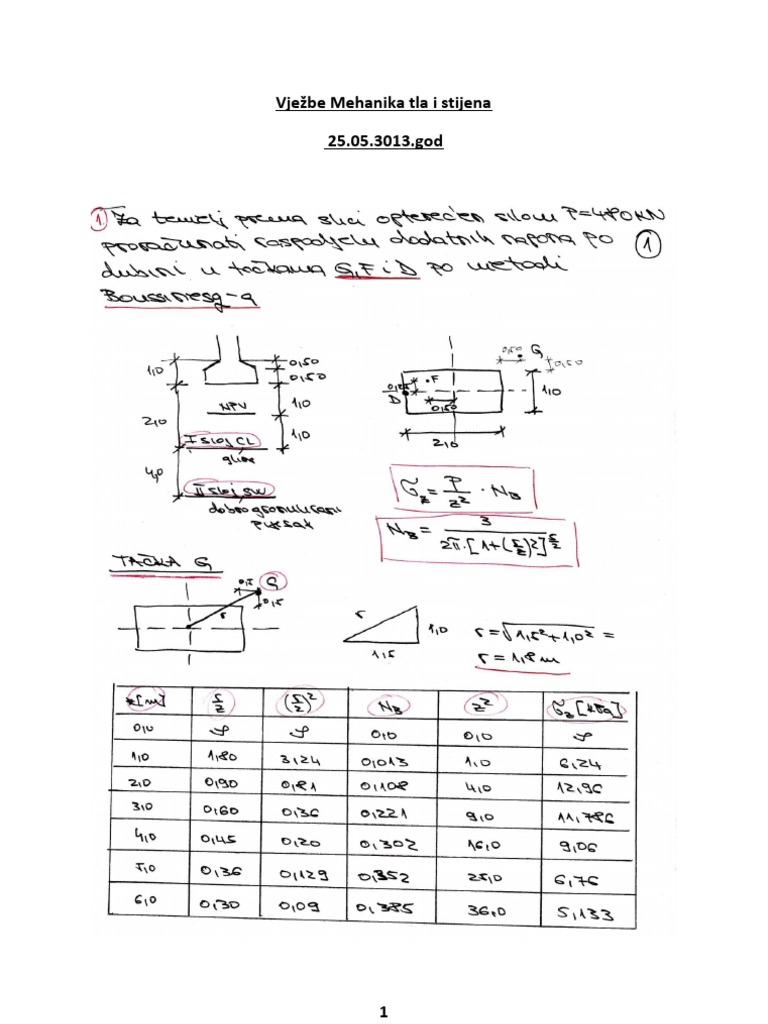 Vježbe Mehanika tla i stijena
25.05.3013.god
1. Za temelj prema slici opterećen silom P=480KN
proračunati raspodjelu dodatnih napona po
1
dubini u tačkama G,F i D po metodi
Boussinesq-a
1,0
0,50
0,50
2,0
NPV
1,0
I sloj CL
1,0
glina
4,0
II sloj SW
dobrogranulirani
pjesak
0,50 G
0,50
0,25 F
D
0,50
1,0
2,0
σz = P/z² · NB
NB = 3/(2π·[1+(r/z)²]^5/2)
TAČKA G
0,5 G
0,5
r
r
1,0
1,5
r=√1,5²+1,0² =
r=1,8m
z[m] r/z (r/z)² NB z² σz[kPa]
0,0 φ φ 0,0 0,0 φ
1,0 1,80 3,24 0,013 1,0 6,24
2,0 0,90 0,81 0,108 4,0 12,96
3,0 0,60 0,36 0,221 9,0 11,786
4,0 0,45 0,20 0,302 16,0 9,06
5,0 0,36 0,129 0,352 25,0 6,76
6,0 0,30 0,09 0,385 36,0 5,133
1